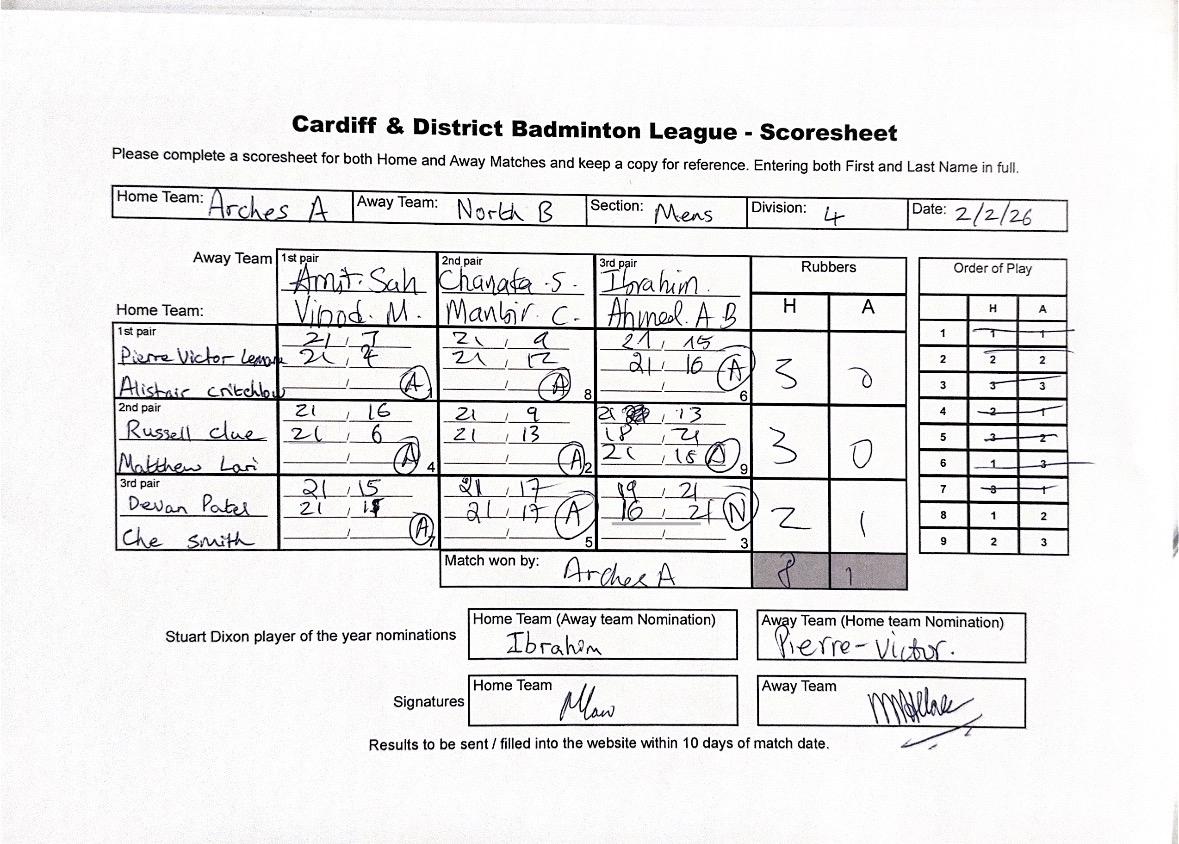 Cardiff & District Badminton League - Scoresheet
Please complete a scoresheet for both Home and Away Matches and keep a copy for reference. Entering both First and Last Name in full.
Home Team: Arches A Away Team: North B Section: Mens Division: 4 Date: 2/2/26
Away Team 1st pair 2nd pair 3rd pair Rubbers Order of Play
Amit. Sah Chanaka .S. Ibrahim.
Home Team: Vinod. M. Manbir. C. Ahmed. A B H A H A
1st pair 21 , 7 21 , 9 21 , 15 1 1 1
Pierre Victor 21 , 21 , 12 21 , 16 A 3 0 2 2 2
Alistair Critchlow / A / A 8 / 6 3 3 3
2nd pair 21 , 16 21 , 9 21 , 13 4 2 1
Russell Clue 21 , 6 21 , 13 18 , 21 3 0 5 3 2
Matthew / A 4 / A 2 21 , 18 A 9 6 1 3
3rd pair 21 , 15 21 , 17 19 , 21 7 3 1
Devan Patel 21 , 21 , 17 A 16 , 21 N 2 1 8 1 2
Che Smith / A 7 / 5 / 3 9 2 3
Match won by: Arches A 8 1
Stuart Dixon player of the year nominations
Home Team (Away team Nomination) Away Team (Home team Nomination)
Ibrahim Pierre-Victor.
Signatures Home Team Away Team
Results to be sent / filled into the website within 10 days of match date.